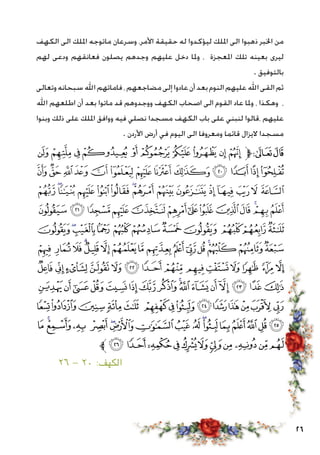 من الخبر ذهبوا الى الملك ليؤكدوا له حقيقة الأمر، وسرعان ماتوجه الملك الى الكهف
ليرى بعينه تلك المعجزة . ولما دخل عليهم وجدهم يصلون فعانقهم ودعى لهم
بالتوفيق .
ثم القى الله عليهم النوم بعد أن عادوا إلى مضاجعهم . فاماتهم الله سبحانه وتعالى
. وهكذا . ولما عاد القوم الى اصحاب الكهف ووجدوهم قد ماتوا بعد أن اطلعهم الله
عليهم .قالوا لنبني على باب الكهف مسجدا نصلي فيه ووافق الملك على ذلك وبنوا
مسجدا لايزال قائما ومعروفا الى اليوم في أرض الأردن .
قَالَ تَعَالَىٰ: ﴿ إِنَّهُمْ إِن يَظْهَرُوا۟ عَلَيْكُمْ يَرْجُمُوكُمْ أَوْ يُعِيدُوكُمْ فِى مِلَّتِهِمْ وَلَن
تُفْلِحُوٓا۟ إِذًا أَبَدًا ۝٢٠ وَكَذَٰلِكَ أَعْثَرْنَا عَلَيْهِمْ لِيَعْلَمُوٓا۟ أَنَّ وَعْدَ ٱللَّهِ حَقٌّ وَأَنَّ
ٱلسَّاعَةَ لَا رَيْبَ فِيهَآ إِذْ يَتَنَٰزَعُونَ بَيْنَهُمْ أَمْرَهُمْ ۖ فَقَالُوا۟ ٱبْنُوا۟ عَلَيْهِم بُنْيَٰنًا ۖ رَّبُّهُمْ
أَعْلَمُ بِهِمْ ۚ قَالَ ٱلَّذِينَ غَلَبُوا۟ عَلَىٰٓ أَمْرِهِمْ لَنَتَّخِذَنَّ عَلَيْهِم مَّسْجِدًا ۝٢١ سَيَقُولُونَ
ثَلَٰثَةٌ رَّابِعُهُمْ كَلْبُهُمْ وَيَقُولُونَ خَمْسَةٌ سَادِسُهُمْ كَلْبُهُمْ رَجْمًۢا بِٱلْغَيْبِ ۖ وَيَقُولُونَ
سَبْعَةٌ وَثَامِنُهُمْ كَلْبُهُمْ ۚ قُل رَّبِّىٓ أَعْلَمُ بِعِدَّتِهِم مَّا يَعْلَمُهُمْ إِلَّا قَلِيلٌ ۗ فَلَا تُمَارِ فِيهِمْ
إِلَّا مِرَآءً ظَٰهِرًا وَلَا تَسْتَفْتِ فِيهِم مِّنْهُمْ أَحَدًا ۝٢٢ وَلَا تَقُولَنَّ لِشَا۟ىْءٍ إِنِّى فَاعِلٌ
ذَٰلِكَ غَدًا ۝٢٣ إِلَّآ أَن يَشَآءَ ٱللَّهُ ۚ وَٱذْكُر رَّبَّكَ إِذَا نَسِيتَ وَقُلْ عَسَىٰٓ أَن يَهْدِيَنِ
رَبِّى لِأَقْرَبَ مِنْ هَٰذَا رَشَدًا ۝٢٤ وَلَبِثُوا۟ فِى كَهْفِهِمْ ثَلَٰثَ مِا۟ئَةٍ سِنِينَ وَٱزْدَادُوا۟ تِسْعًا
۝٢٥ قُلِ ٱللَّهُ أَعْلَمُ بِمَا لَبِثُوا۟ ۖ لَهُۥ غَيْبُ ٱلسَّمَٰوَٰتِ وَٱلْأَرْضِ ۖ أَبْصِرْ بِهِۦ وَأَسْمِعْ ۚ مَا
لَهُم مِّن دُونِهِۦ مِن وَلِىٍّ وَلَا يُشْرِكُ فِى حُكْمِهِۦٓ أَحَدًا ۝٢٦ ﴾
الكهف: ٢٠ - ٢٦
٢٦